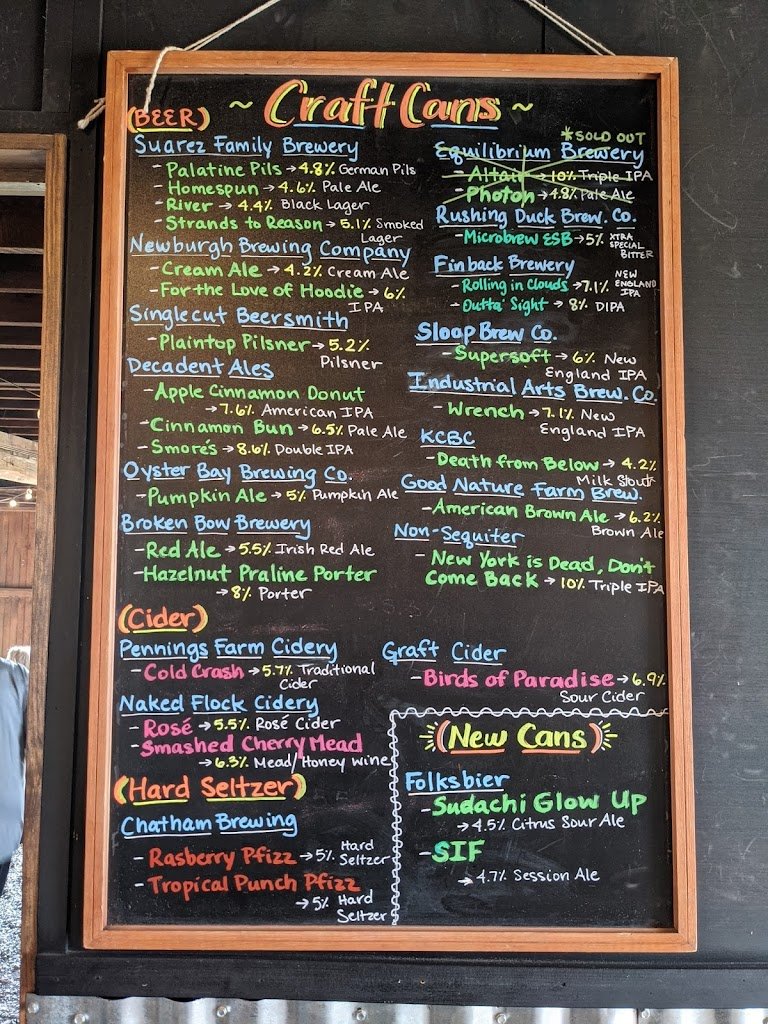 ~ Craft Cans ~
(BEER)
Suarez Family Brewery
- Palatine Pils → 4.8% German Pils
- Homespun → 4.6% Pale Ale
- River → 4.4% Black Lager
- Strands to Reason → 5.1% Smoked
Lager
Newburgh Brewing Company
- Cream Ale → 4.2% Cream Ale
- For the Love of Hoodie → 6%
IPA
Singlecut Beersmith
- Plaintop Pilsner → 5.2%
Pilsner
Decadent Ales
- Apple Cinnamon Donut
→ 7.6% American IPA
- Cinnamon Bun → 6.5% Pale Ale
- Smore's → 8.6% Double IPA
Oyster Bay Brewing Co.
- Pumpkin Ale → 5% Pumpkin Ale
Broken Bow Brewery
- Red Ale → 5.5% Irish Red Ale
- Hazelnut Praline Porter
→ 8% Porter
*SOLD OUT
Equilibrium Brewery
- Altair → 10% Triple IPA
- Photon → 4.8% Pale Ale
Rushing Duck Brew. Co.
- Microbrew ESB → 5% XTRA
SPECIAL
BITTER
Finback Brewery
- Rolling in Clouds → 7.1% NEW
ENGLAND
IPA
- Outta' Sight → 8% DIPA
Sloop Brew Co.
- Supersoft → 6% New
England IPA
Industrial Arts Brew. Co.
- Wrench → 7.1% New
England IPA
KCBC
- Death from Below → 4.2%
Milk Stout
Good Nature Farm Brew.
- American Brown Ale → 6.2%
Brown Ale
Non-Sequiter
- New York is Dead, Don't
Come Back → 10% Triple IPA
(Cider)
Pennings Farm Cidery
- Cold Crash → 5.7% Traditional
Cider
Naked Flock Cidery
- Rosé → 5.5% Rosé Cider
- Smashed Cherry Mead
→ 6.3% Mead/Honey wine
Graft Cider
- Birds of Paradise → 6.9%
Sour Cider
(Hard Seltzer)
Chatham Brewing
- Rasberry Pfizz → 5% Hard
Seltzer
- Tropical Punch Pfizz
→ 5% Hard
Seltzer
(New Cans)
Folksbier
- Sudachi Glow Up
→ 4.5% Citrus Sour Ale
- SIF
→ 4.7% Session Ale